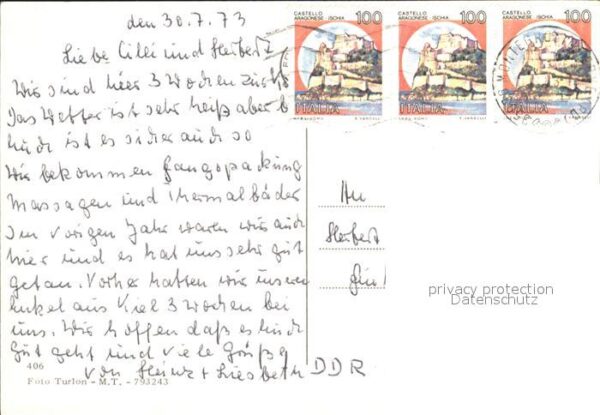 den 30.7.73
Liebe Cilli und Herbert
Wir sind hier 3 Wochen zur
Das Wetter ist sehr heiß aber b
Euch ist es sicher auch so
Wir bekommen Fangopackung
Massagen und Thermalbäder
Im vorigen Jahr waren wir auch
hier und es hat uns sehr gut
getan. Vorher hatten wir unseren
Enkel aus Kiel 3 Wochen bei
uns. Wir hoffen daß es Euch
gut geht und viele Grüße
von Heinz + Liesbeth
406
Foto Turlon - M.T. - 793243
CASTELLO
ARAGONESE - ISCHIA
100
ITALIA
CASTELLO
ARAGONESE - ISCHIA
100
ITALIA
CASTELLO
ARAGONESE - ISCHIA
100
ITALIA
An
Herbert
DDR
privacy protection
Datenschutz